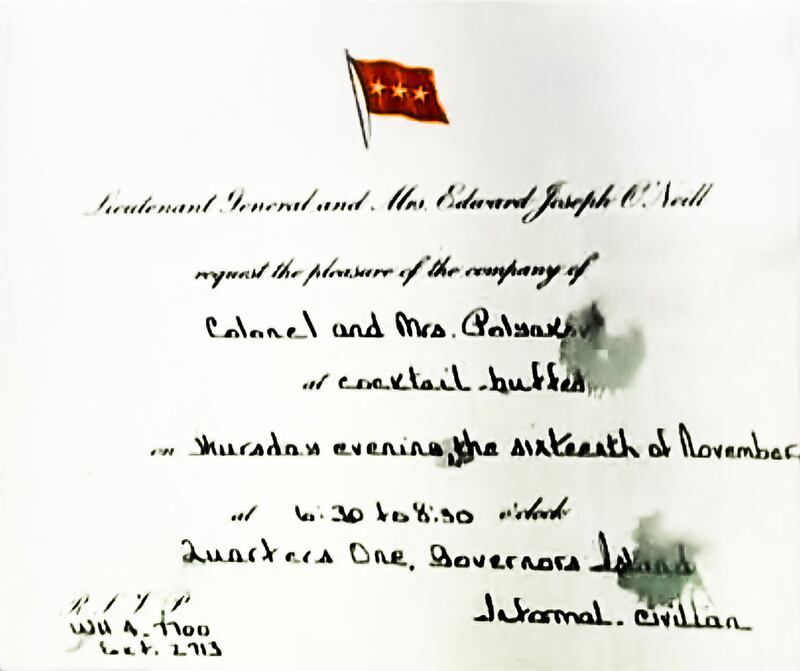 Lieutenant General and Mrs. Edward Joseph O'Neill
request the pleasure of the company of
Colonel and Mrs. Polyakov
at cocktail-buffet
on Thursday evening, the sixteenth of November
at 6:30 to 8:30 o'clock
Quarters One, Governors Island
R.S.V.P.
Informal-civilian
WH 4-7700
Ext. 2713